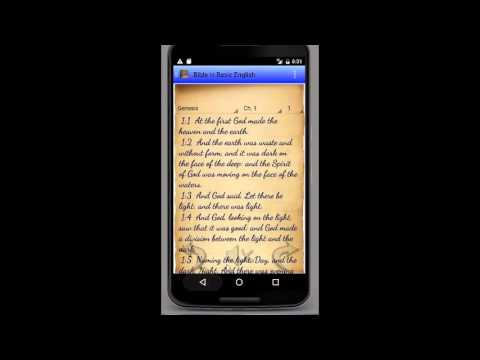 8:01
Bible in Basic English
Genesis Ch. 1 1
1:1 At the first God made the
heaven and the earth.
1:2 And the earth was waste and
without form; and it was dark on
the face of the deep: and the Spirit
of God was moving on the face of the
waters.
1:3 And God said, Let there be
light: and there was light.
1:4 And God, looking on the light,
saw that it was good: and God made
a division between the light and the
dark,
1:5 Naming the light, Day, and the
dark, Night. And there was evening